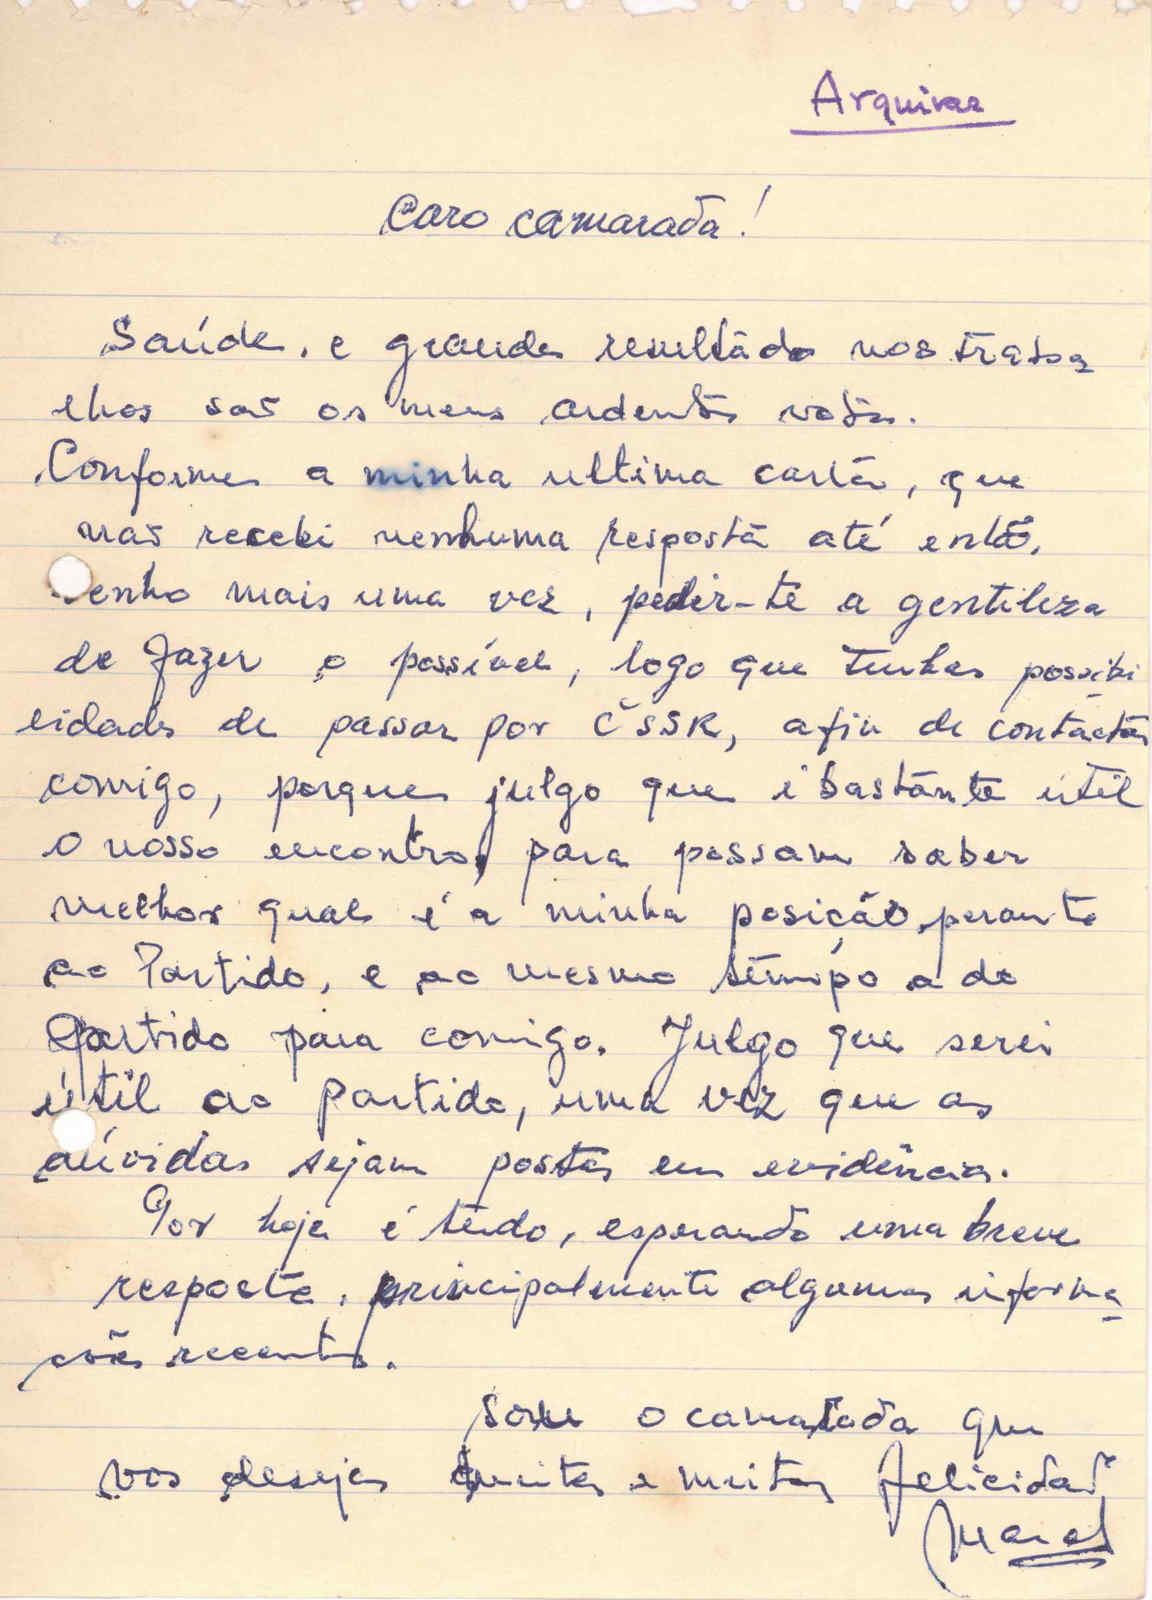 Arquivar
Caro camarada!
Saúde, e grandes resultado nos traba
lhos são os meus ardentes votos.
Conforme a minha ultima carta, que
não recebi nenhuma resposta até então,
venho mais uma vez, pedir-te a gentileza
de fazer o possível, logo que tenhas possibi
lidades de passar por ČSSR, afin de contactar
comigo, porque julgo que é bastante útil
o nosso encontro, para possam saber
melhor qual é a minha posição, perante
ao Partido, e ao mesmo tempo a do
partido para comigo. Julgo que serei
útil ao Partido, uma vez que as
dúvidas sejam postas em evidência.
Por hoje é tudo, esperando uma breve
resposta, principalmente algumas informa
ções recentes.
Sou o camarada que
vos deseja muitas e muitas felicidad